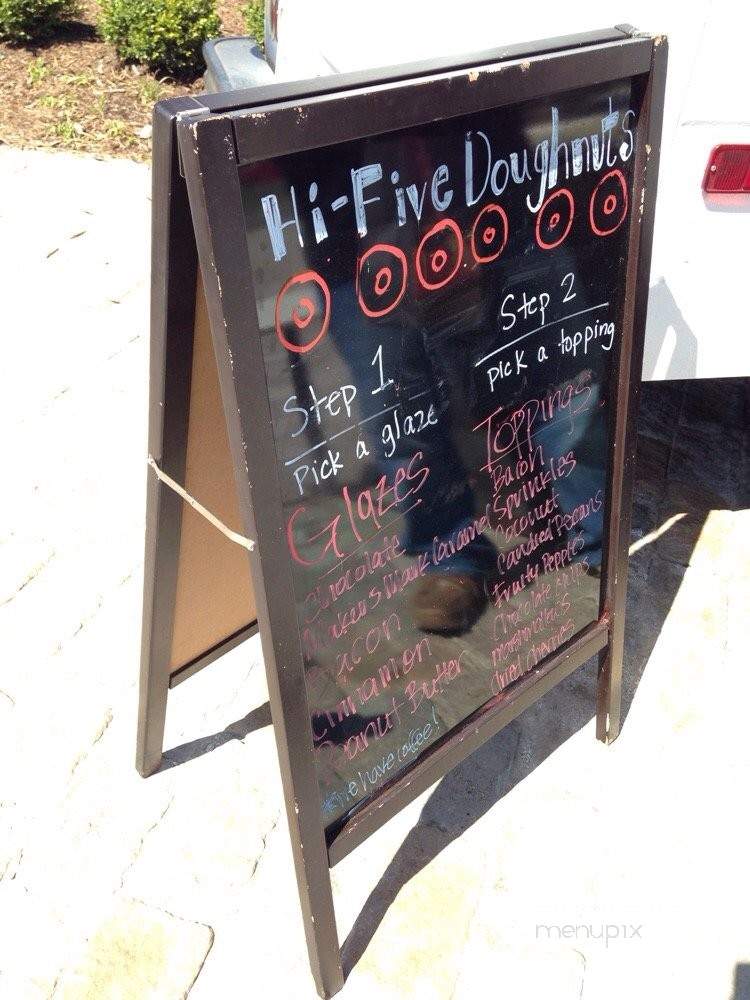 Hi-Five Doughnuts
Step 1
Pick a glaze
Glazes
Chocolate
Makers Mark Caramel
Bacon
Cinnamon
Peanut Butter
*We have coffee!
Step 2
pick a topping
Toppings
Bacon
Sprinkles
Coconut
Candied Pecans
Fruity Pepples
Chocolate chips
marshmallows
dried cherries
menupix